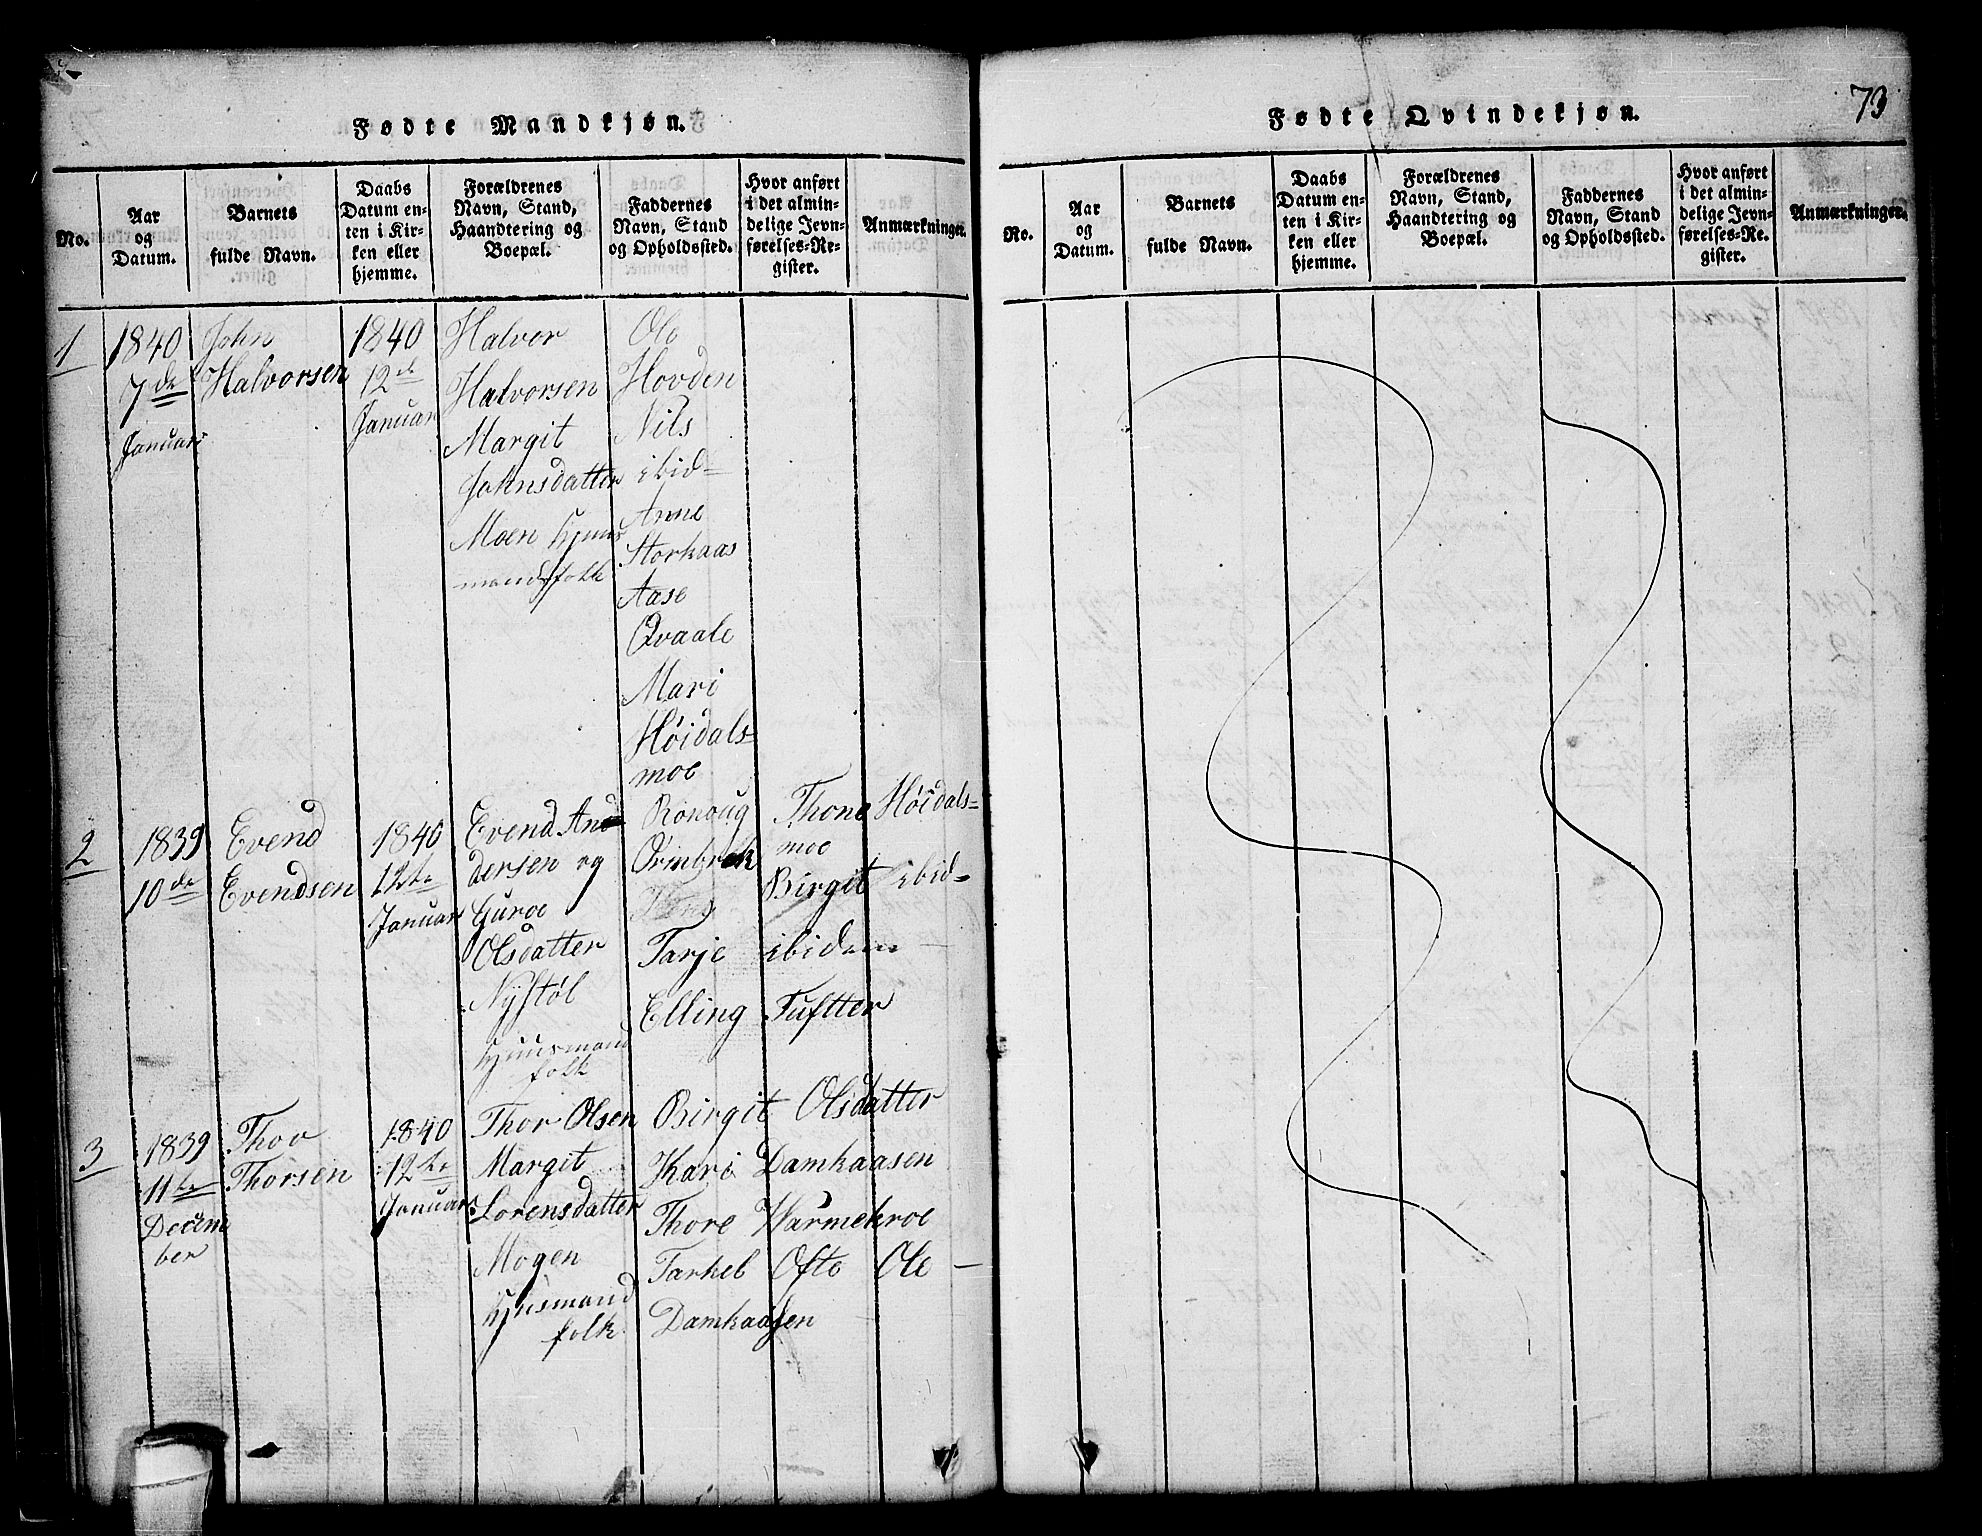 Fødte Mandkjøn.
No.
Aar
og
Datum.
Barnets
fulde Navn.
Daabs
Datum en-
ten i Kir-
ken eller
hjemme.
Forældrenes
Navn, Stand,
Haandtering og
Boepæl.
Faddernes
Navn, Stand
og Opholdssted.
Hvor anført
i det almin-
delige Jevn-
førelses-Re-
gister.
Anmærkninger.
1
1840
7de
Januari
John
Halvorsen
1840
12de
Januar
Halvor
Halvorsen
Margit
Johnsdatter
Moen Huus
mandsfolk
Ole
Hovden
Nils
ibid-
Anne
Storkaas
Aase
Qvaale
Mari
Höidals-
moe
2
1839
10de
Evend
Evendsen
1840
12te
Januar
Evend An-
dersen og
Guroe
Olsdatter
Nystøl
Huusmand
folk
Ronoug
Ormbrek
Thone Höidals-
moe
Birgit ibid-
Tarje ibidem
Elling Tuftter
3
1839
11te
Decem
ber
Thov
Thorsen
1840
12te
Januar
Thor Olsen
Margit
Lorensdatter
Mogen
Husmand
folk
Birgit Olsdatter
Kari Damkaasen
Thore Warmekroe
Tarkel Ofte Ole -
Damkaasen
Fødte Qvindekjøn.
73
No.
Aar
og
Datum.
Barnets
fulde Navn.
Daabs
Datum en-
ten i Kir-
ken eller
hjemme.
Forældrenes
Navn, Stand,
Haandtering og
Boepæl.
Faddernes
Navn, Stand
og Opholdssted.
Hvor anført
i det almin-
delige Jevn-
førelses-Re-
gister.
Anmærkninger.